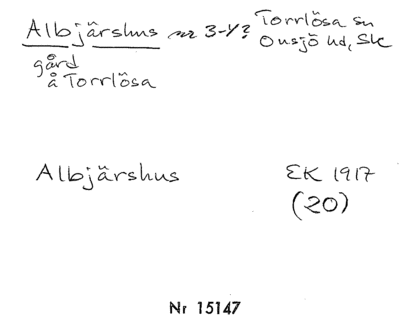 Albjärshus nr 3-4? Torrlösa sn
Onsjö hd, Sk
gård
å Torrlösa
Albjärshus EK 1917
(20)
Nr 15147